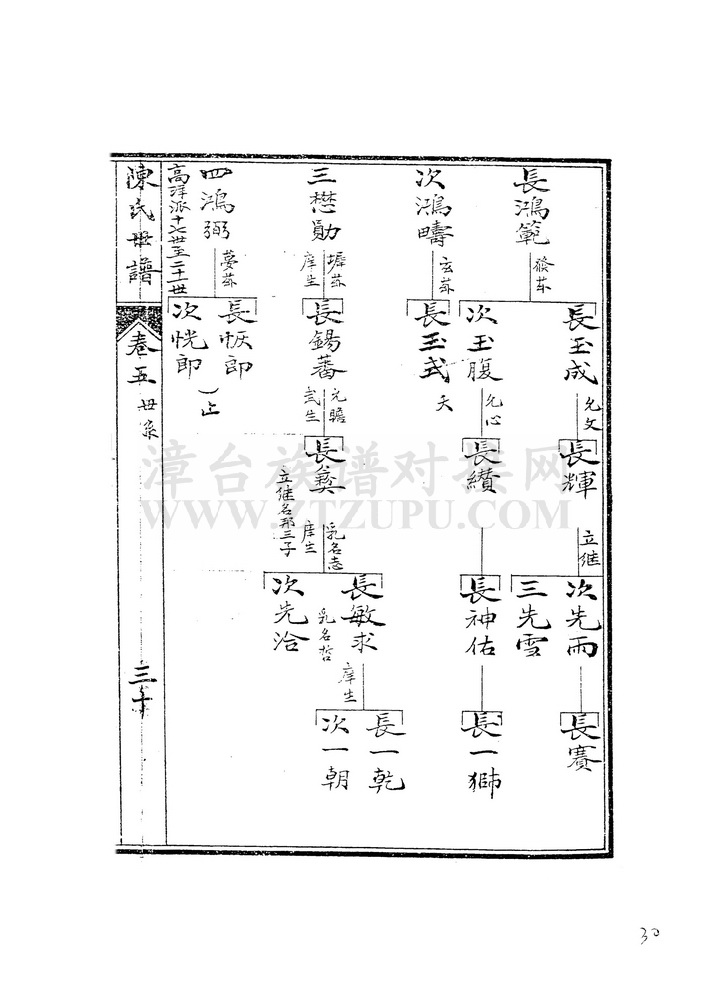 長鴻範
發苐
長玉成
允文
長輝
立繼
次先雨
長賽
三先雪
次玉腹
允心
長纘
長神佑
長一獅
次鴻疇
玄苐
長玉式
夭
三懋勛
墀苐
庠生
長錫蕃
允瞻
武生
長彜
乳名志
庠生
立継名那三子
長敏求
乳名哲
庠生
長一乾
次一朝
次先洽
四鴻弼
夢苐
長帳郎
止
次恍郎
高洋派十七世至二十一世
陳氏世譜
卷五 世系
三十
漳台族谱对接网
WWW.ZTZUPU.COM
30